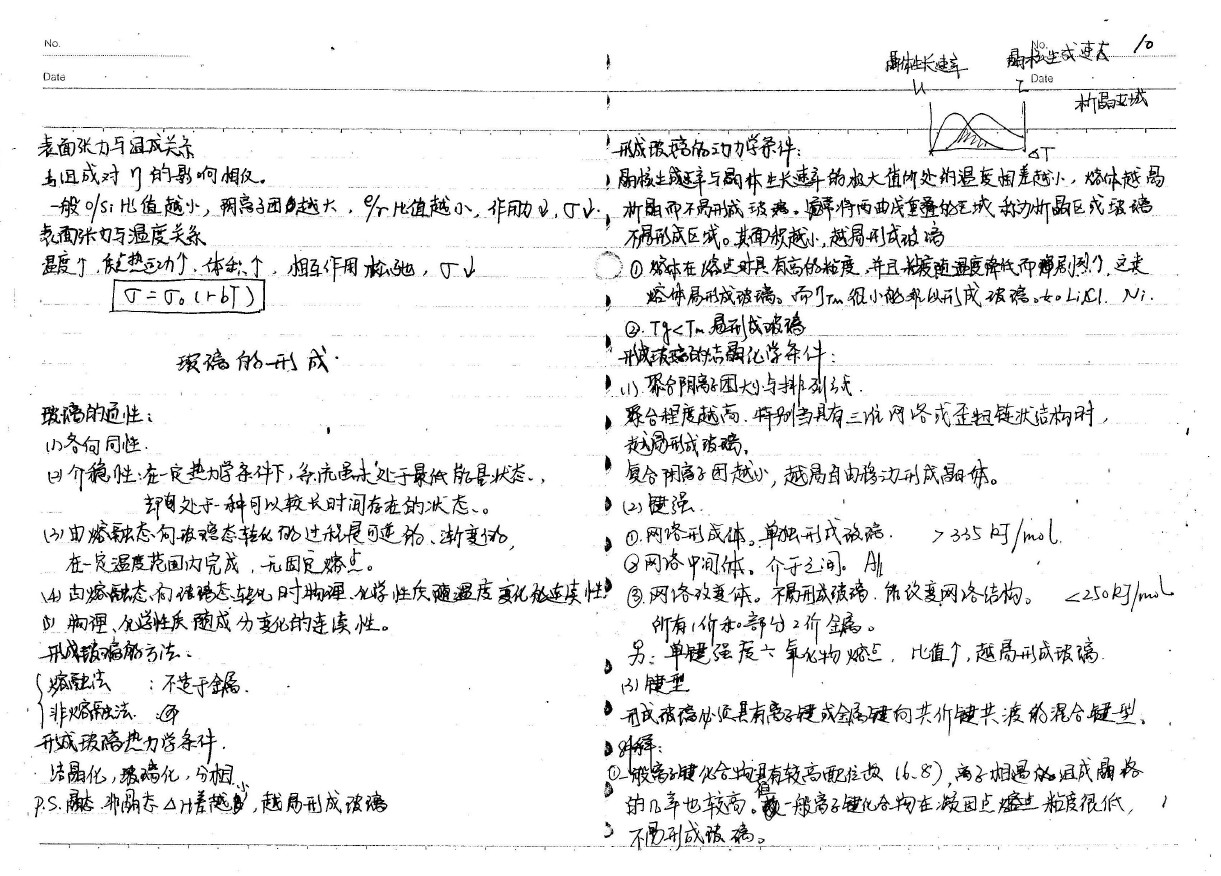 No.
Date
表面张力与组成关系
与组成对 η 的影响相仪。
一般 O/Si 比值越小，阴离子团越大，e/r 比值越小，作用力↓，σ↓.
表面张力与温度关系
温度↑，质点热运动↑，体积↑，相互作用松弛，σ↓
σ=σ₀(1-bT)
玻璃的形成.
玻璃的通性：
(1)各向同性.
(2)介稳性：在一定热力学条件下，虽未处于最低能量状态、，
却处于一种可以较长时间存在的状态、。
(3)由熔融态向玻璃态转化的过程是可逆的、渐变的，
在一定温度范围内完成，无固定熔点。
(4)由熔融态向玻璃态转化时物理、化学性质随温度变化的连续性
(5)物理、化学性质随成分变化的连续性。
形成玻璃的方法、
熔融法 ：不适于金属.
非熔融法.
形成玻璃热力学条件.
结晶化，玻璃化，分相
P.S.晶态.非晶态 △H差越小，越易形成玻璃
晶体生长速率 晶核生成速率
No. 10
Date
u I
析晶区域
△T
形成玻璃的动力学条件：
晶核生成速率与晶体生长速率的极大值所处的温度相差越小，熔体越易
析晶而不易形成玻璃。通常将两曲线重叠的区域称为析晶区或玻璃
不易形成区域。其面积越小，越易形成玻璃
① 熔体在熔点时具有高的粘度，并且粘度随温度降低而剧烈↑，这类
熔体易形成玻璃。而 ηTm 很小的难以形成玻璃。如 LiCl. Ni.
②. Tg<Tm 易形成玻璃
形成玻璃的结晶化学条件：
(1). 聚合阴离子团大小与排列方式.
聚合程度越高.特别当具有三维网络或歪扭链状结构时，
越易形成玻璃。
复合阴离子团越小，越易自由移动形成晶体。
(2)键强.
①.网络形成体。单独形成玻璃. >335 kJ/mol.
②网络中间体。介于之间。Al
③.网络改变体。不易形成玻璃.能改变网络结构。 <250kJ/mol
所有1价和部分2价金属。
另：单键强度与氧化物熔点，比值↑，越易形成玻璃.
(3)键型
形成玻璃必须具有离子键或金属键向共价键过渡的混合键型。
解释：
①一般离子键化合物具有较高配位数(6.8)，离子相遇的组成晶格
的几率也较高。但一般离子键化合物在凝固点熔点粘度很低，
不易形成玻璃。